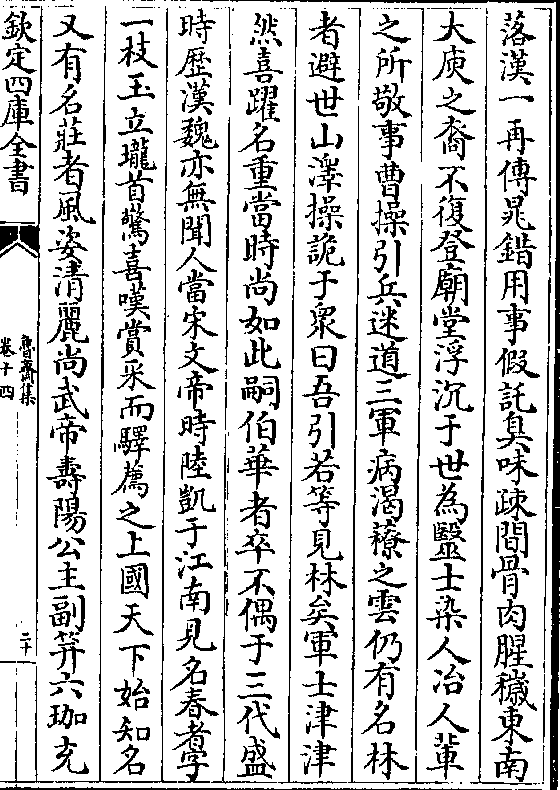 落漢一再傳晁錯用事假託臭味疎間骨肉腥穢東南
大庾之裔不復登廟堂浮沉于世為毉士染人冶人輩
之所敬事曹操引兵迷道三軍病渴䕷之雲仍有名林
者避世山澤操詭于衆曰吾引若等見林矣軍士津津
然喜躍名重當時尚如此嗣伯華者卒不偶于三代盛
時歴漢魏亦無聞人當宋文帝時陸凱于江南見名春者孚
一枝玉立瓏首驚喜嘆賞采而驛薦之上國天下始知名
又有名莊者風姿清麗尚武帝壽陽公主副笄六珈充
欽定四庫全書
魯齋集
卷十四
二十